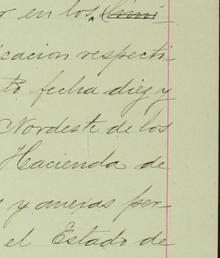 r en los
icacion respecti
to fecha diez y
Nordeste de los
Hacienda de
y anexas per-
el Estado de